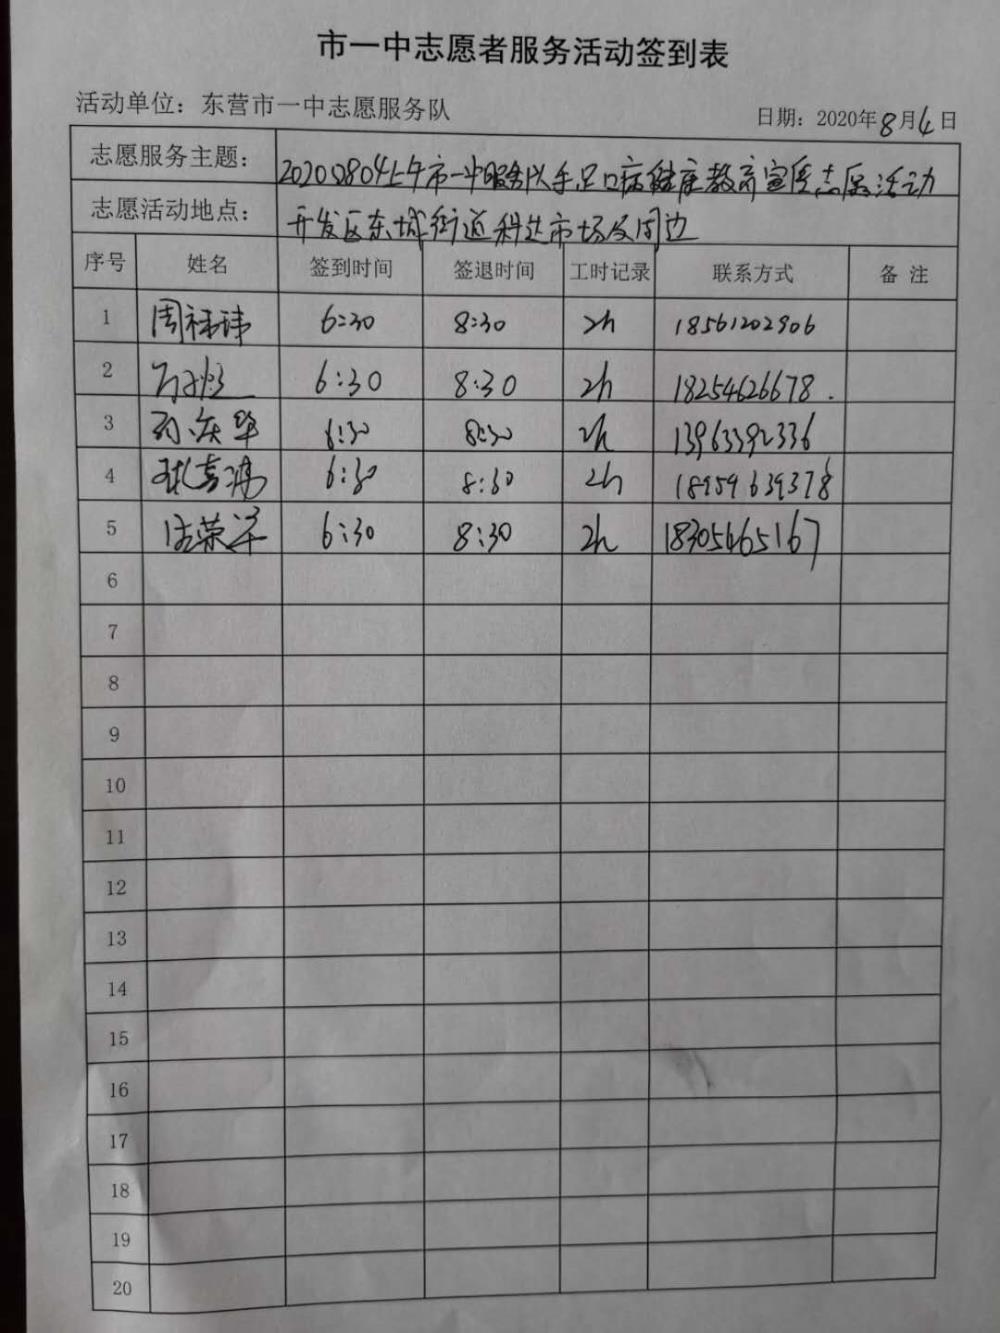 市一中志愿者服务活动签到表
活动单位：东营市一中志愿服务队 日期：2020年8月4日
志愿服务主题： 20200804上午市一中服务队手足口病健康教育宣传志愿活动
志愿活动地点： 开发区东城街道科达市场及周边
序号 姓名 签到时间 签退时间 工时记录 联系方式 备注
1 周禄玮 6:30 8:30 2h 18561202906
2 6:30 8:30 2h 18254626678.
3 孙庆华 6:30 8:30 2h 13963392336
4 6:30 8:30 2h
5 6:30 8:30 2h 18305465167
6
7
8
9
10
11
12
13
14
15
16
17
18
19
20